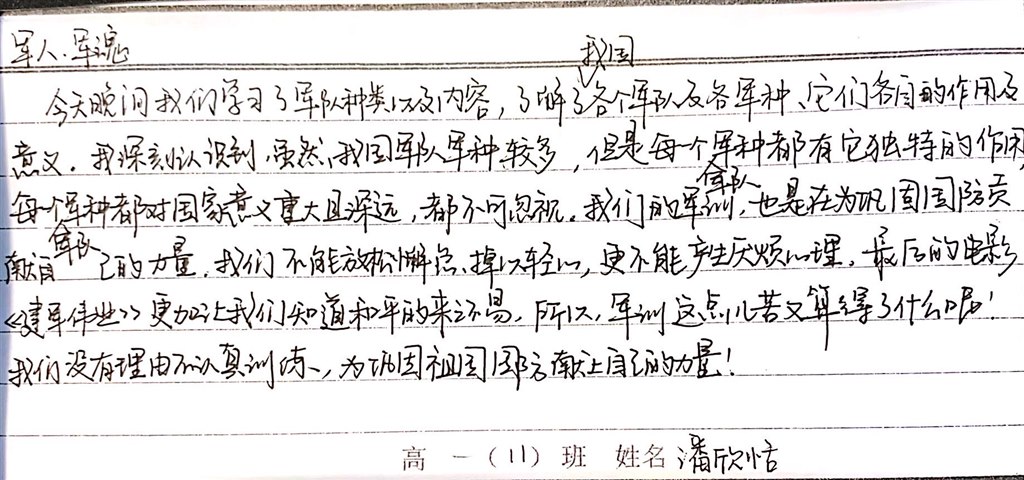 军人.军魂
我国
今天晚间我们学习了军队种类以及内容,了解了各个军队及各军种、它们各自的作用及
意义。我深刻认识到,虽然,我国军队军种较多,但是每一个军种都有它独特的作用
每一个军种都对国家意义重大且深远,都不可忽视。我们的军训,也是在为巩固国防贡
军队
军队
献自己的力量,我们不能放松懈怠、掉以轻心,更不能产生厌烦心理,最后的电影
《建军伟业》更加让我们知道和平的来之不易,所以,军训这点儿苦又算得了什么呢!
我们没有理由不认真训练,为巩固祖国国防献上自己的力量!
高一(11)班 姓名潘欣恬